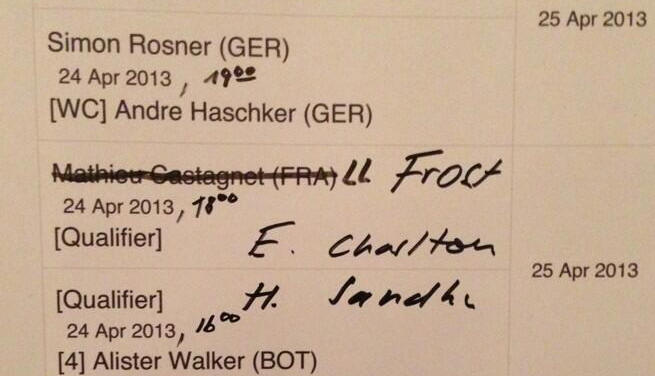 25 Apr 2013
Simon Rosner (GER)
24 Apr 2013, 19⁰⁰
[WC] Andre Haschker (GER)
Mathieu Castagnet (FRA) LL Frost
24 Apr 2013, 18⁰⁰
[Qualifier] E. Charlton
25 Apr 2013
[Qualifier] H. Sandhu
24 Apr 2013, 16⁰⁰
[4] Alister Walker (BOT)